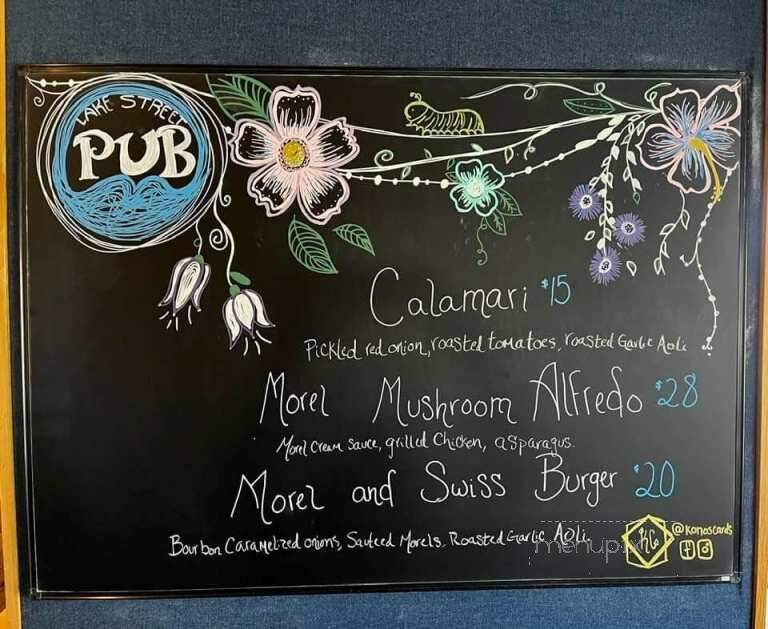 LAKE STREET
PUB
Calamari $15
Pickled red onion, roasted tomatoes, roasted Garlic Aoli
Morel Mushroom Alfredo $28
Morel Cream Sauce, grilled Chicken, asparagus.
Morel and Swiss Burger $20
Bourbon Caramelized onions, Sauteed Morels, Roasted Garlic Aoli
KC @konascards
menupix